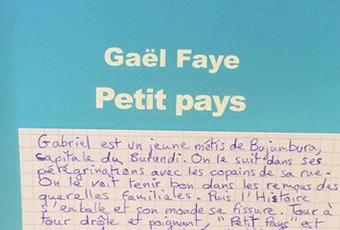 Gaël Faye
Petit pays
Gabriel est un jeune métis de Bujumbura,
capitale du Burundi. On le suit dans ses
pérégrinations avec les copains de sa rue.
On le voit tenir bon dans les remous des
querelles familiales. Puis l'Histoire
s'emballe et son monde se fissure. Tour à
tour drôle et poignant, "Petit Pays" est